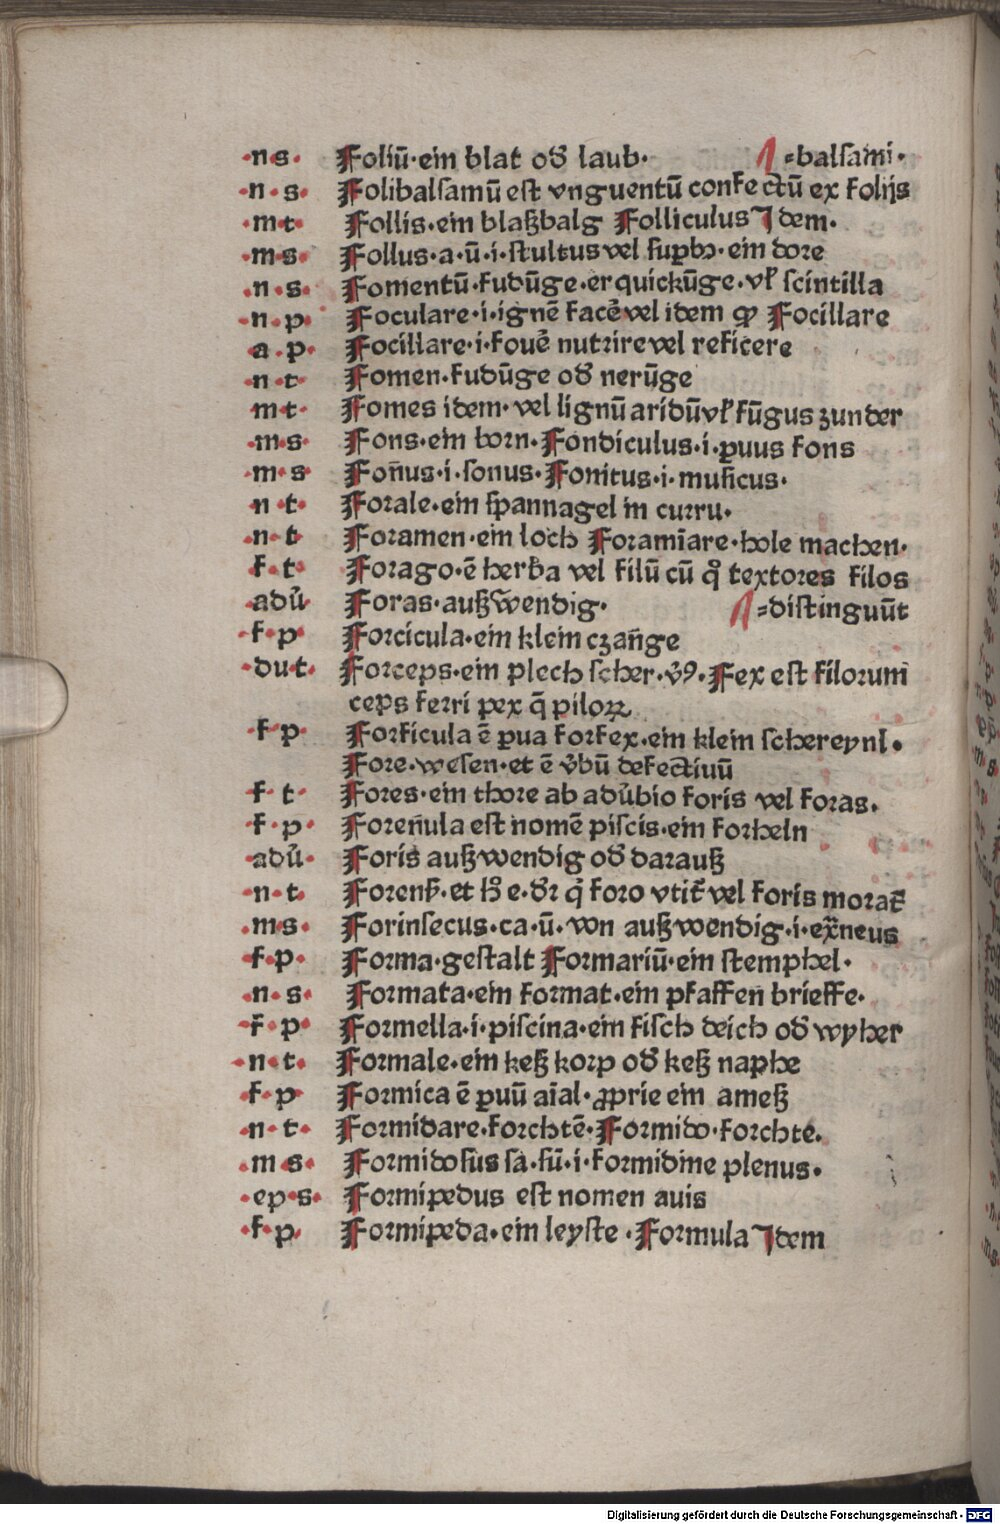 ·n·s· Foliū·ein blat od̄ laub· =balsami·
·n·s· Folibalsamū est vnguentū confectū ex folijs
·m·t· Follis·ein blaßbalg Folliculus Jdem·
·m·s· Follus·a·ū·i·stultus vel supbꝰ·ein dore
·n·s· Fomentū·fudūge·erquickūge·vl̄ scintilla
·n·p· Foculare·i·ignē facē vel idem ꝙ Focillare
a·p· Focillare·i·fouē nutrire vel reficere
n·t· Fomen·fudūge od̄ nerūge
m·t· Fomes idem·vel lignū aridū vl̄ fūgus zunder
·m·s· Fons·ein born·Fondiculus·i·ꝑuus fons
·m·s Foñus·i·sonus·Fonitus·i·musicus·
n·t· Forale·ein spannagel in curru·
n·t· Foramen·ein loch Foramīare·hole machen·
f·t· Forago·ē herba vel filū cū qͦ textores filos
adū· Foras·außwendig· =distinguūt
·f·p· Forcicula·ein klein czañge
·du·t· Forceps·ein plech scher·v̄ꝰ·Fex est filorum
ceps ferri pex q̄ piloꝝ
f·p· Forficula ē ꝑua forfex·ein klein schereynl·
Fore·wesen·et ē v̄bū defectiuū
f·t· Fores·ein thore ab adūbio foris vel foras·
f·p· Foreñula est nomē piscis·ein forheln
adū· Foris außwendig od̄ darauß
·n·t· Forenß·et hͦ e·dr̄ qͥ foro vtit̄ vel foris morat̄
·m·s· Forinsecus·ca·ū·von außwendig·i·ex̄neus
f·p· Forma·gestalt Formariū·ein stemphel·
·n·s· Formata·ein format·ein pfaffen brieffe·
·f·p· Formella·i·piscina·ein fisch deich od̄ wyher
·n·t· Formale·ein keß korp od̄ keß naphe
·f·p· Formica ē ꝑuū aīal·ꝓprie ein ameß
·n·t· Formidare·forchtē·Formido·forchte.
·m·s· Formidosus sa·sū·i·formidine plenus·
·ep·s· Formipedus est nomen auis
·f·p· Formipeda·ein leyste·Formula Jdem
Digitalisierung gefördert durch die Deutsche Forschungsgemeinschaft - DFG